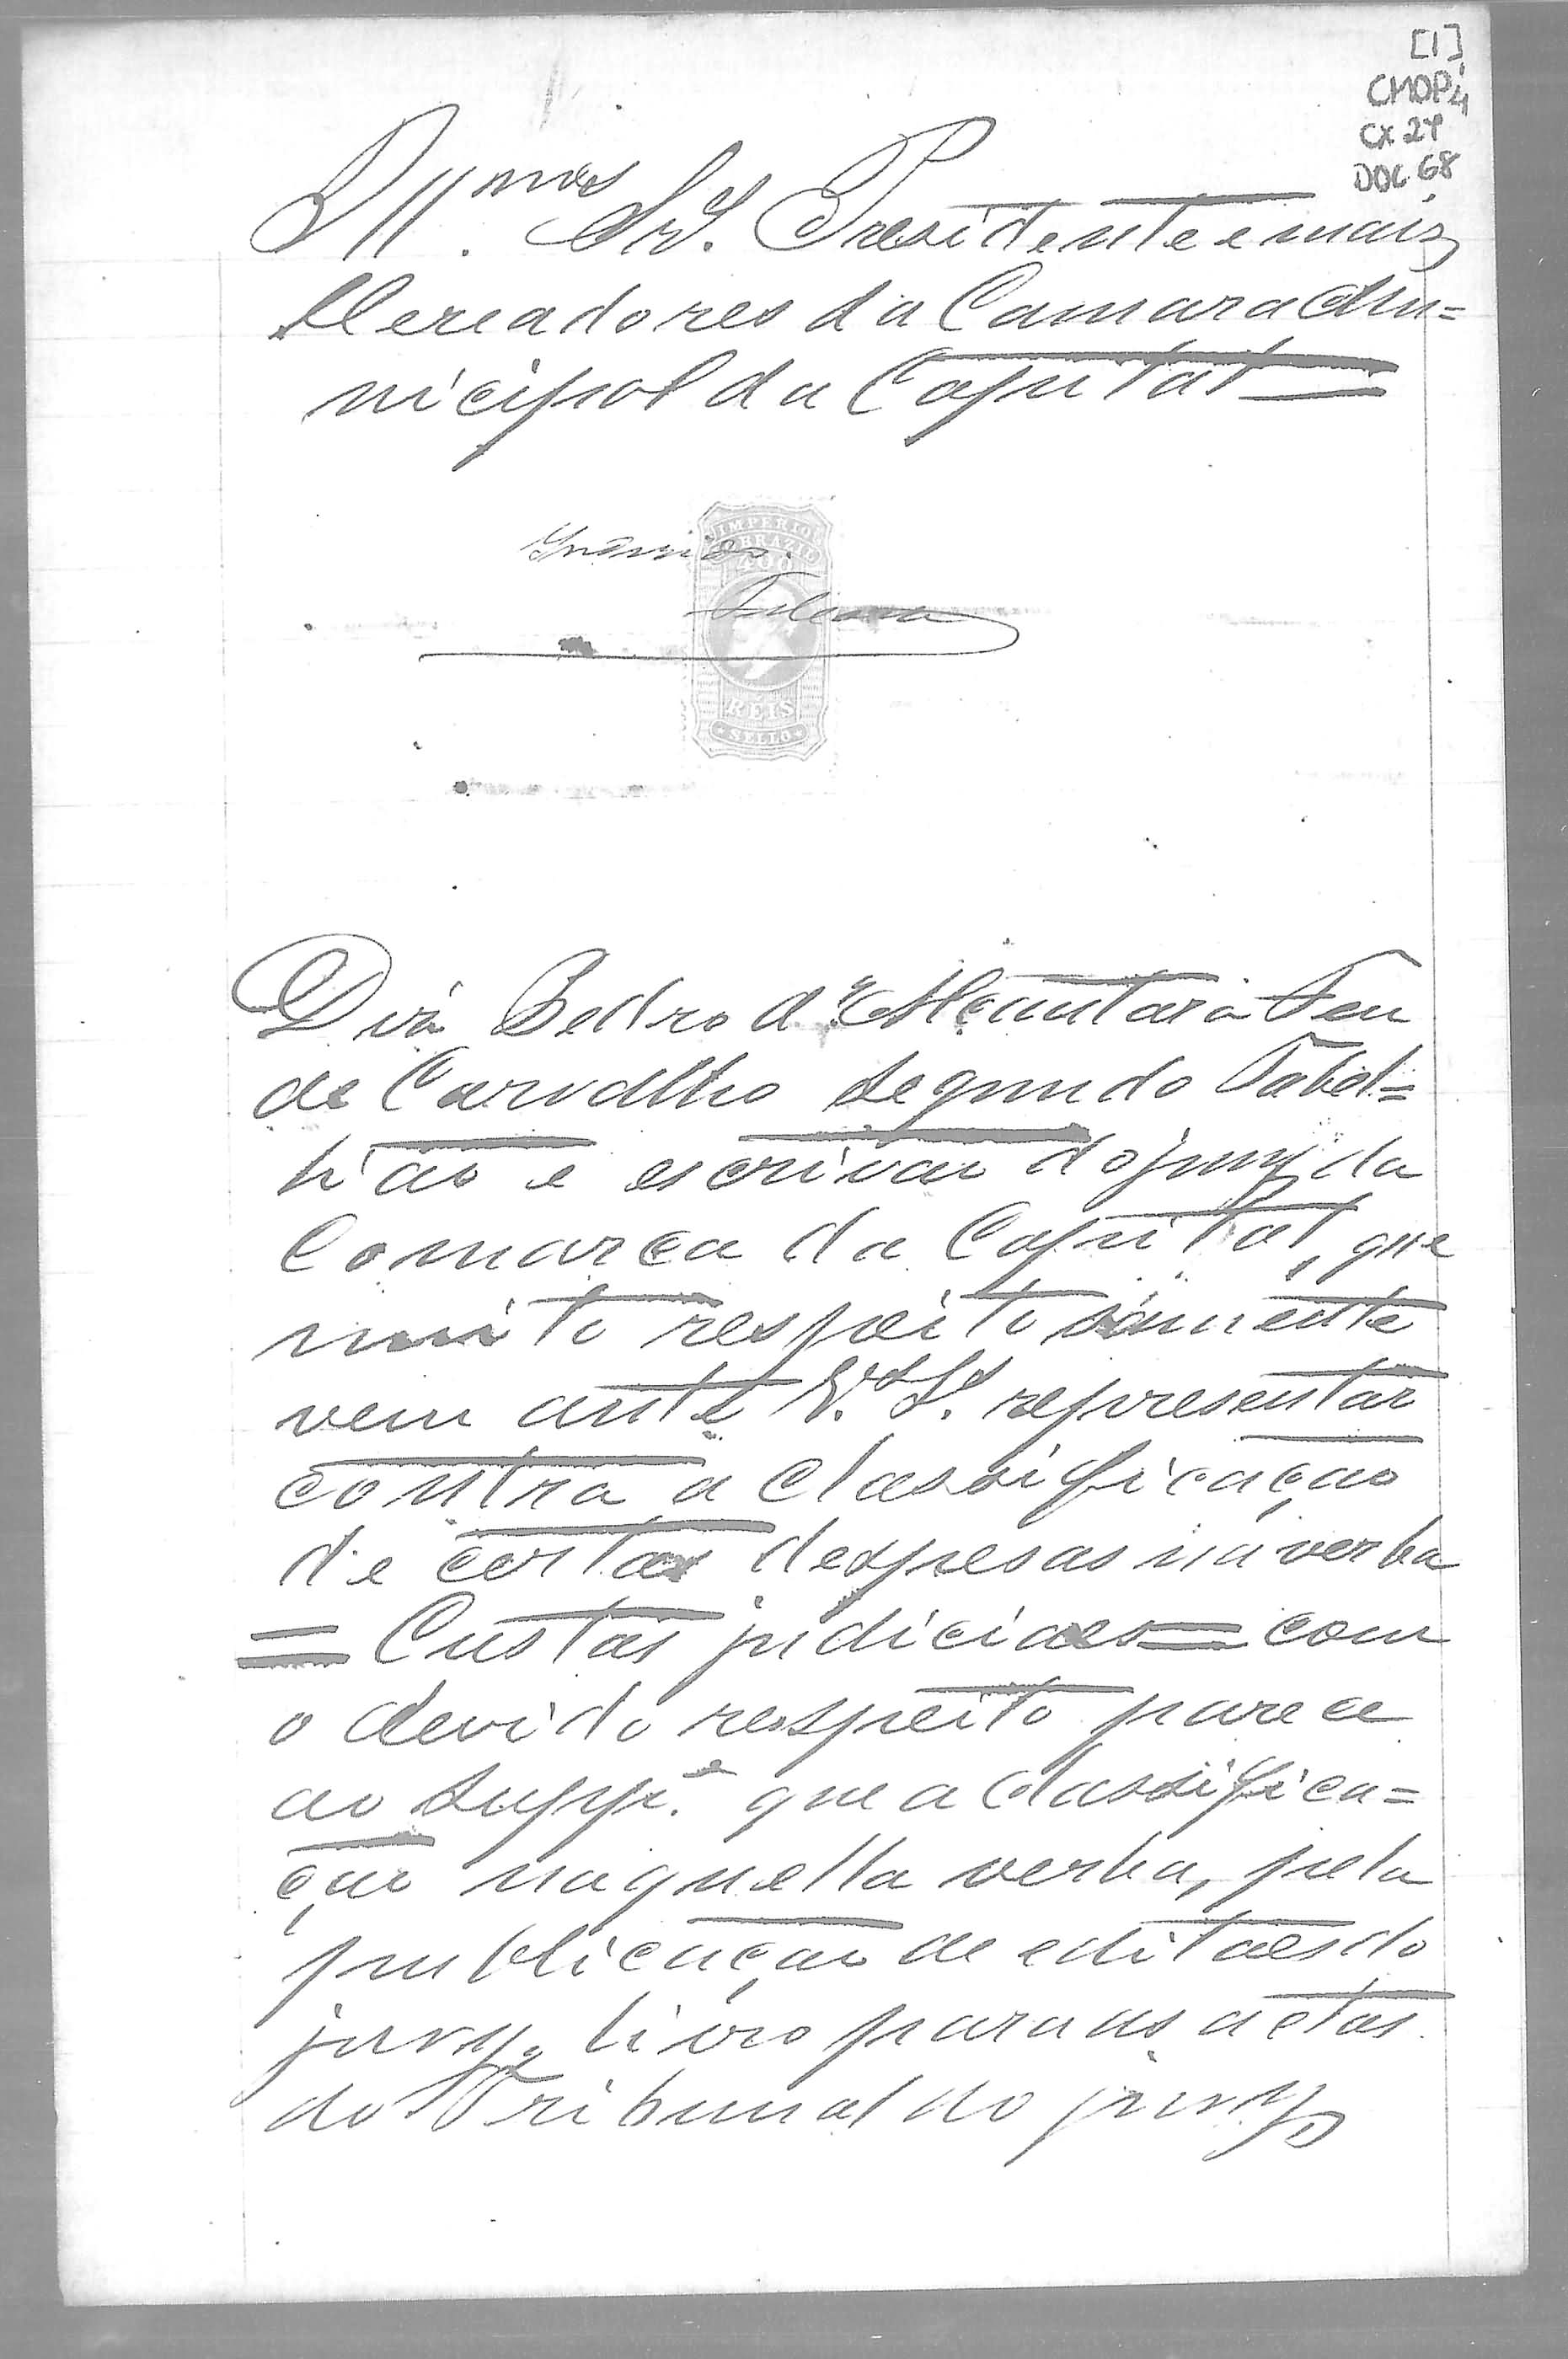 [1]
CMOP
CX 24
DOC 68
Ill.mos Srs. Presidente e mais
Vereadores da Camara Mu=
nicipal da Capital =
IMPERIO
BRAZIL
400
REIS
SELLO
Diz Pedro d'Alcantara Feu
de Carvalho segundo Tabel=
lião e escrivão do jury da
Comarca da Capital, que
muito respeitosamente
vem ante V.as S.as representar
contra a classificação
de certas despesas na verba
= Custas judiciaes = com
o devido respeito parece
ao Supp.e que a classifica=
ção naquella verba, pela
publicação de editaes do
jury, livro para as actas
do Tribunal do jury